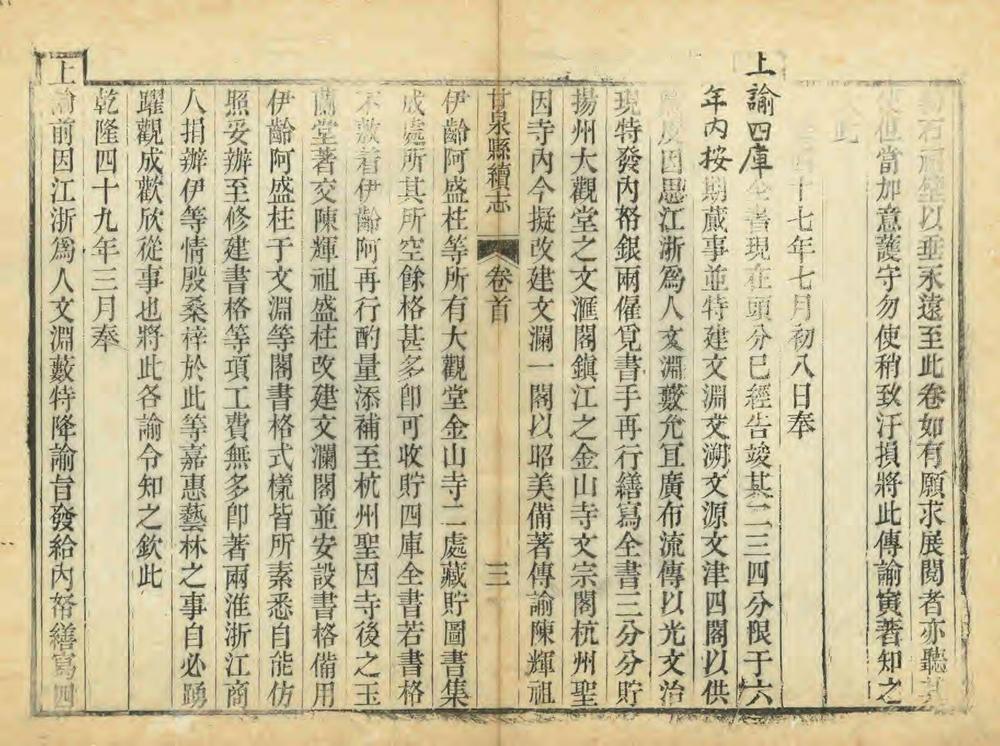 以垂永遠至此卷如有願求展閱者亦聽
但當加意護守勿使稍致汙損將此傳諭寅著知之
此
十七年七月初八日奉
上諭四庫全書現在頭分已經告竣其二三四分限于六
年內按期蕆事並特建文淵文溯文源文津四閣以供
因思江浙爲人文淵藪允宜廣布流傳以光文治
現特發內帑銀兩僱覓書手再行繕寫全書三分分貯
揚州大觀堂之文滙閣鎭江之金山寺文宗閣杭州聖
因寺內今擬改建文瀾一閣以昭美備著傳諭陳輝祖
甘泉縣續志 卷首 三
伊齡阿盛柱等所有大觀堂金山寺二處藏貯圖書集
成處所其所空餘格甚多卽可收貯四庫全書若書格
不敷著伊齡阿再行酌量添補至杭州聖因寺後之玉
蘭堂著交陳輝祖盛柱改建文瀾閣並安設書格備用
伊齡阿盛柱于文淵等閣書格式樣皆所素悉自能仿
照妥辦至修建書格等項工費無多卽著兩淮浙江商
人捐辦伊等情殷桑梓於此等嘉惠藝林之事自必踴
躍觀成歡欣從事也將此各諭令知之欽此
乾隆四十九年三月奉
上諭前因江浙爲人文淵藪特降諭旨發給內帑繕寫四